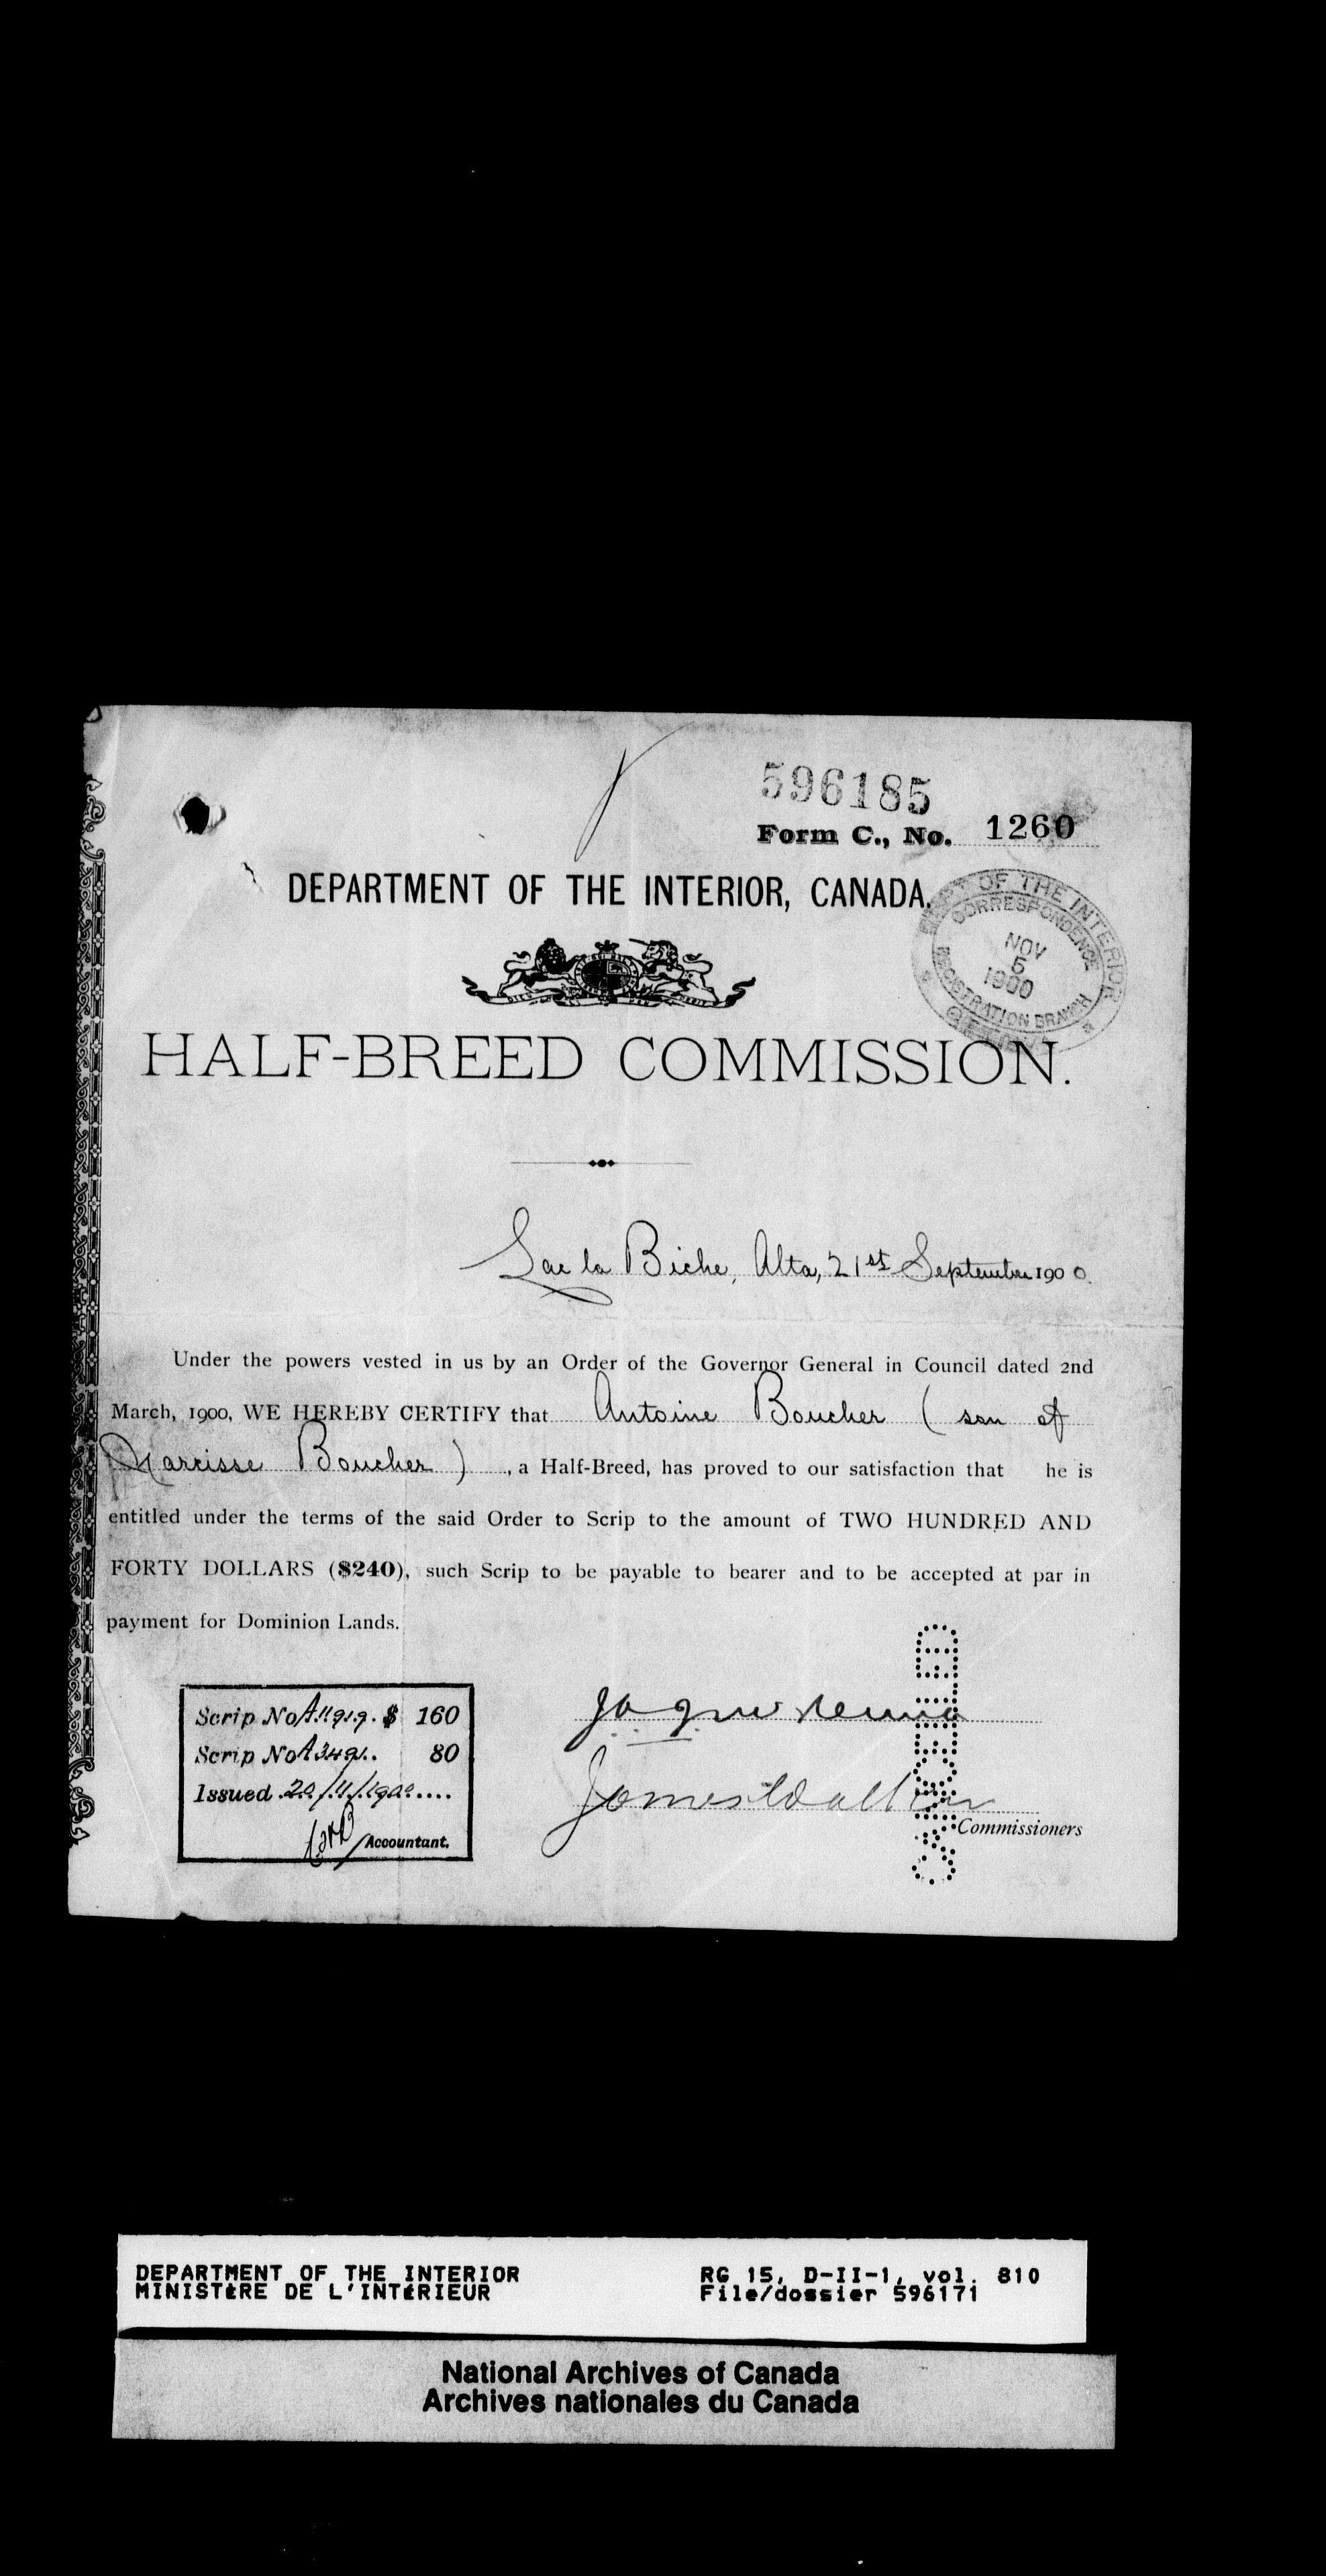 596185
Form C., No. 1260
DEPARTMENT OF THE INTERIOR, CANADA.
DEPT OF THE INTERIOR
CORRESPONDENCE
NOV
5
1900
REGISTRATION BRANCH
HALF-BREED COMMISSION.
Lac la Biche, Alta, 21st September 1900.
Under the powers vested in us by an Order of the Governor General in Council dated 2nd
March, 1900, WE HEREBY CERTIFY that Antoine Boucher ( son of
Narcisse Boucher ) , a Half-Breed, has proved to our satisfaction that he is
entitled under the terms of the said Order to Scrip to the amount of TWO HUNDRED AND
FORTY DOLLARS ($240), such Scrip to be payable to bearer and to be accepted at par in
payment for Dominion Lands.
Scrip No A.11919. $ 160
Scrip No A3491.. 80
Issued 20/11/1900....
Accountant.
James Walker
Commissioners
DEPARTMENT OF THE INTERIOR
MINISTÈRE DE L'INTÉRIEUR
RG 15, D-II-1, vol. 810
File/dossier 596171
National Archives of Canada
Archives nationales du Canada